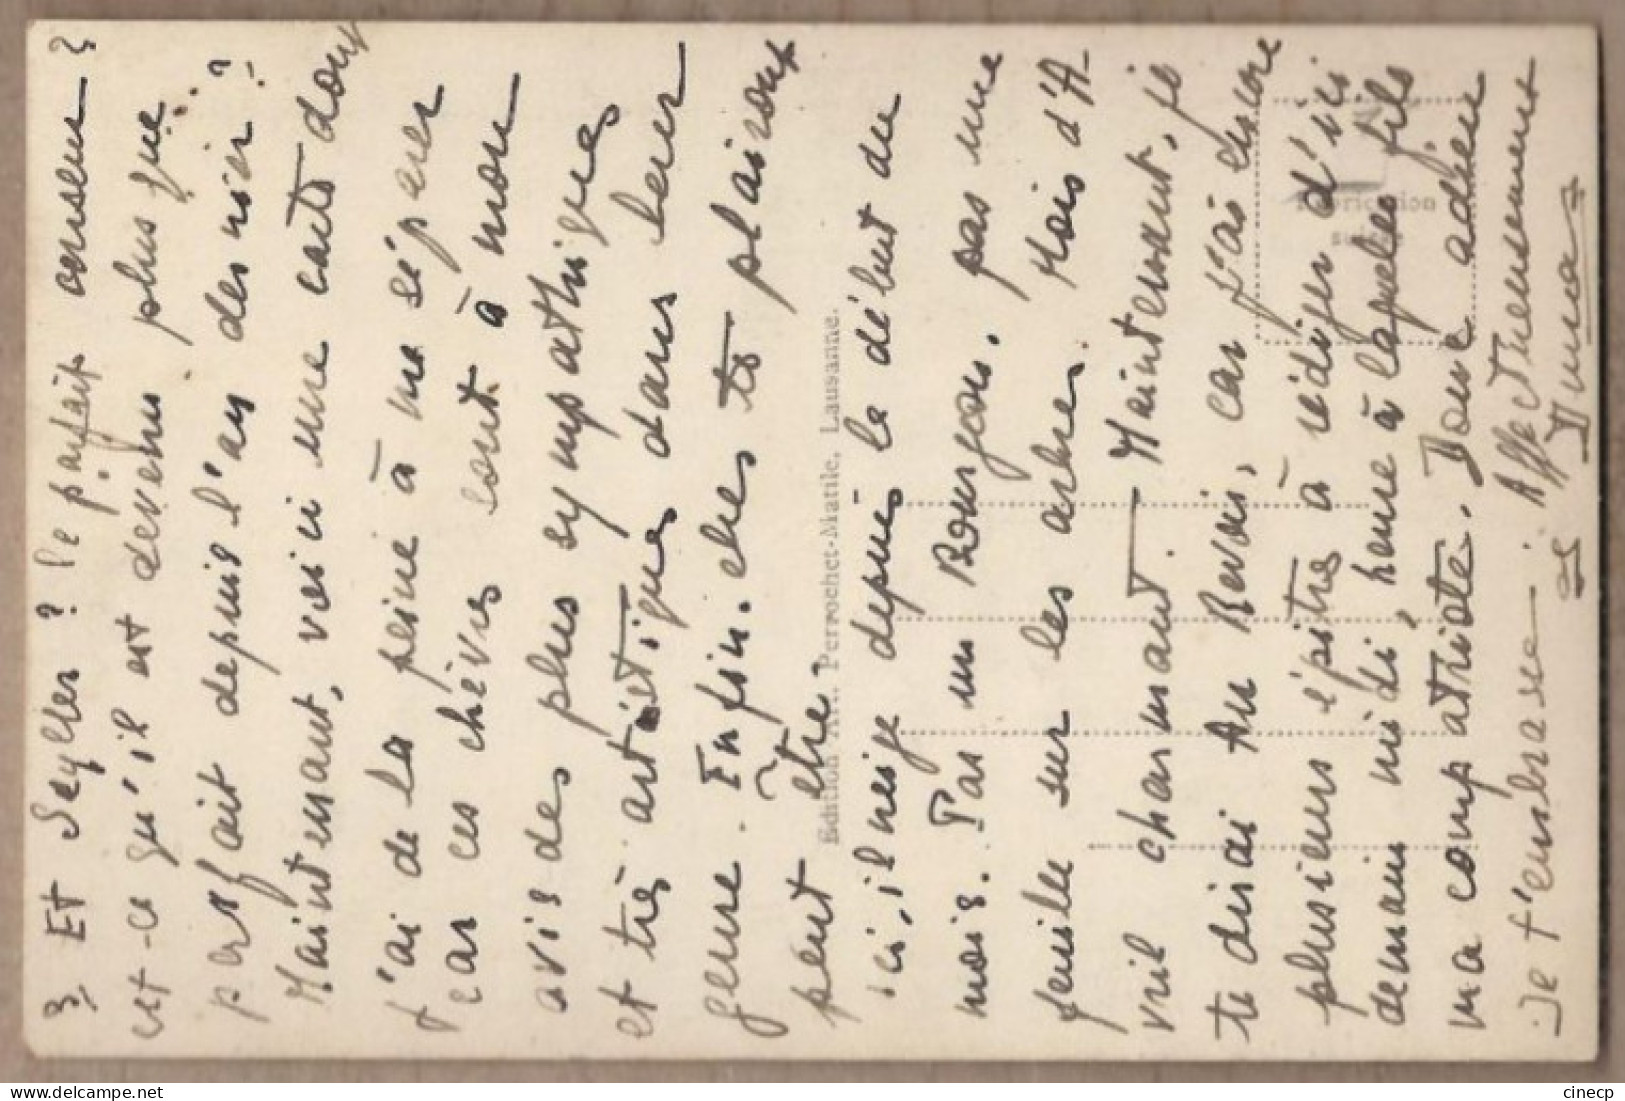 3/ Et Seylter ? le parfait causeur ?
est-ce qu'il est devenu plus que
parfait depuis l'an dernier ?
Maintenant, voici une carte dont
j'ai de la peine à me séparer
car ces chèvres sont à mon
avis des plus sympathiques
et très artistiques dans leur
genre. Enfin. elles te plairont
peut être.
ici, il neige depuis le début du
mois. Pas un Bourgeon, pas une
feuille sur les arbres. Mois d'A-
vril charmant. Maintenant, je
te dirai Au Revoir, car j'ai encore
plusieurs épitres à rédiger d'ici
demain midi, heure à laquelle file
ma compatriote. Donc adieu
Je t'embrasse. Affectueusement
Edition A. Perrochet-Matile, Lausanne.
Fabrication
suisse
cinecp